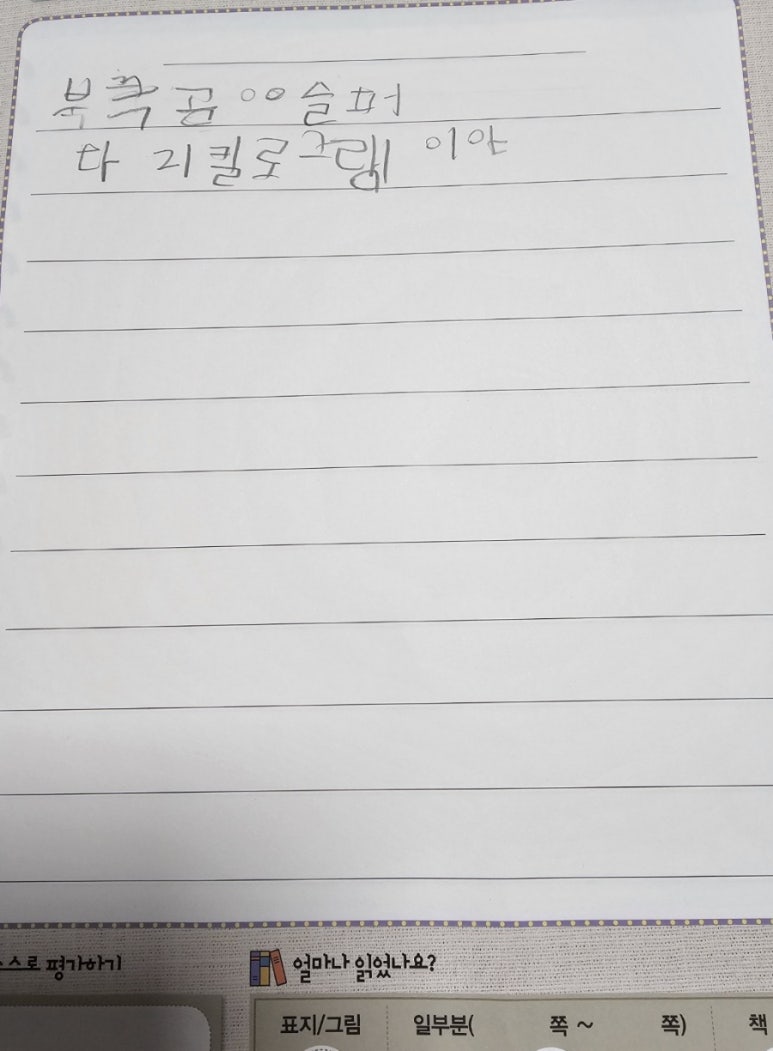 북측곰 ㅇㅇ 슬퍼
다 리킬로그램 이야
스스로 평가하기
얼마나 읽었나요?
표지/그림 일부분( 쪽 ~ 쪽) 책